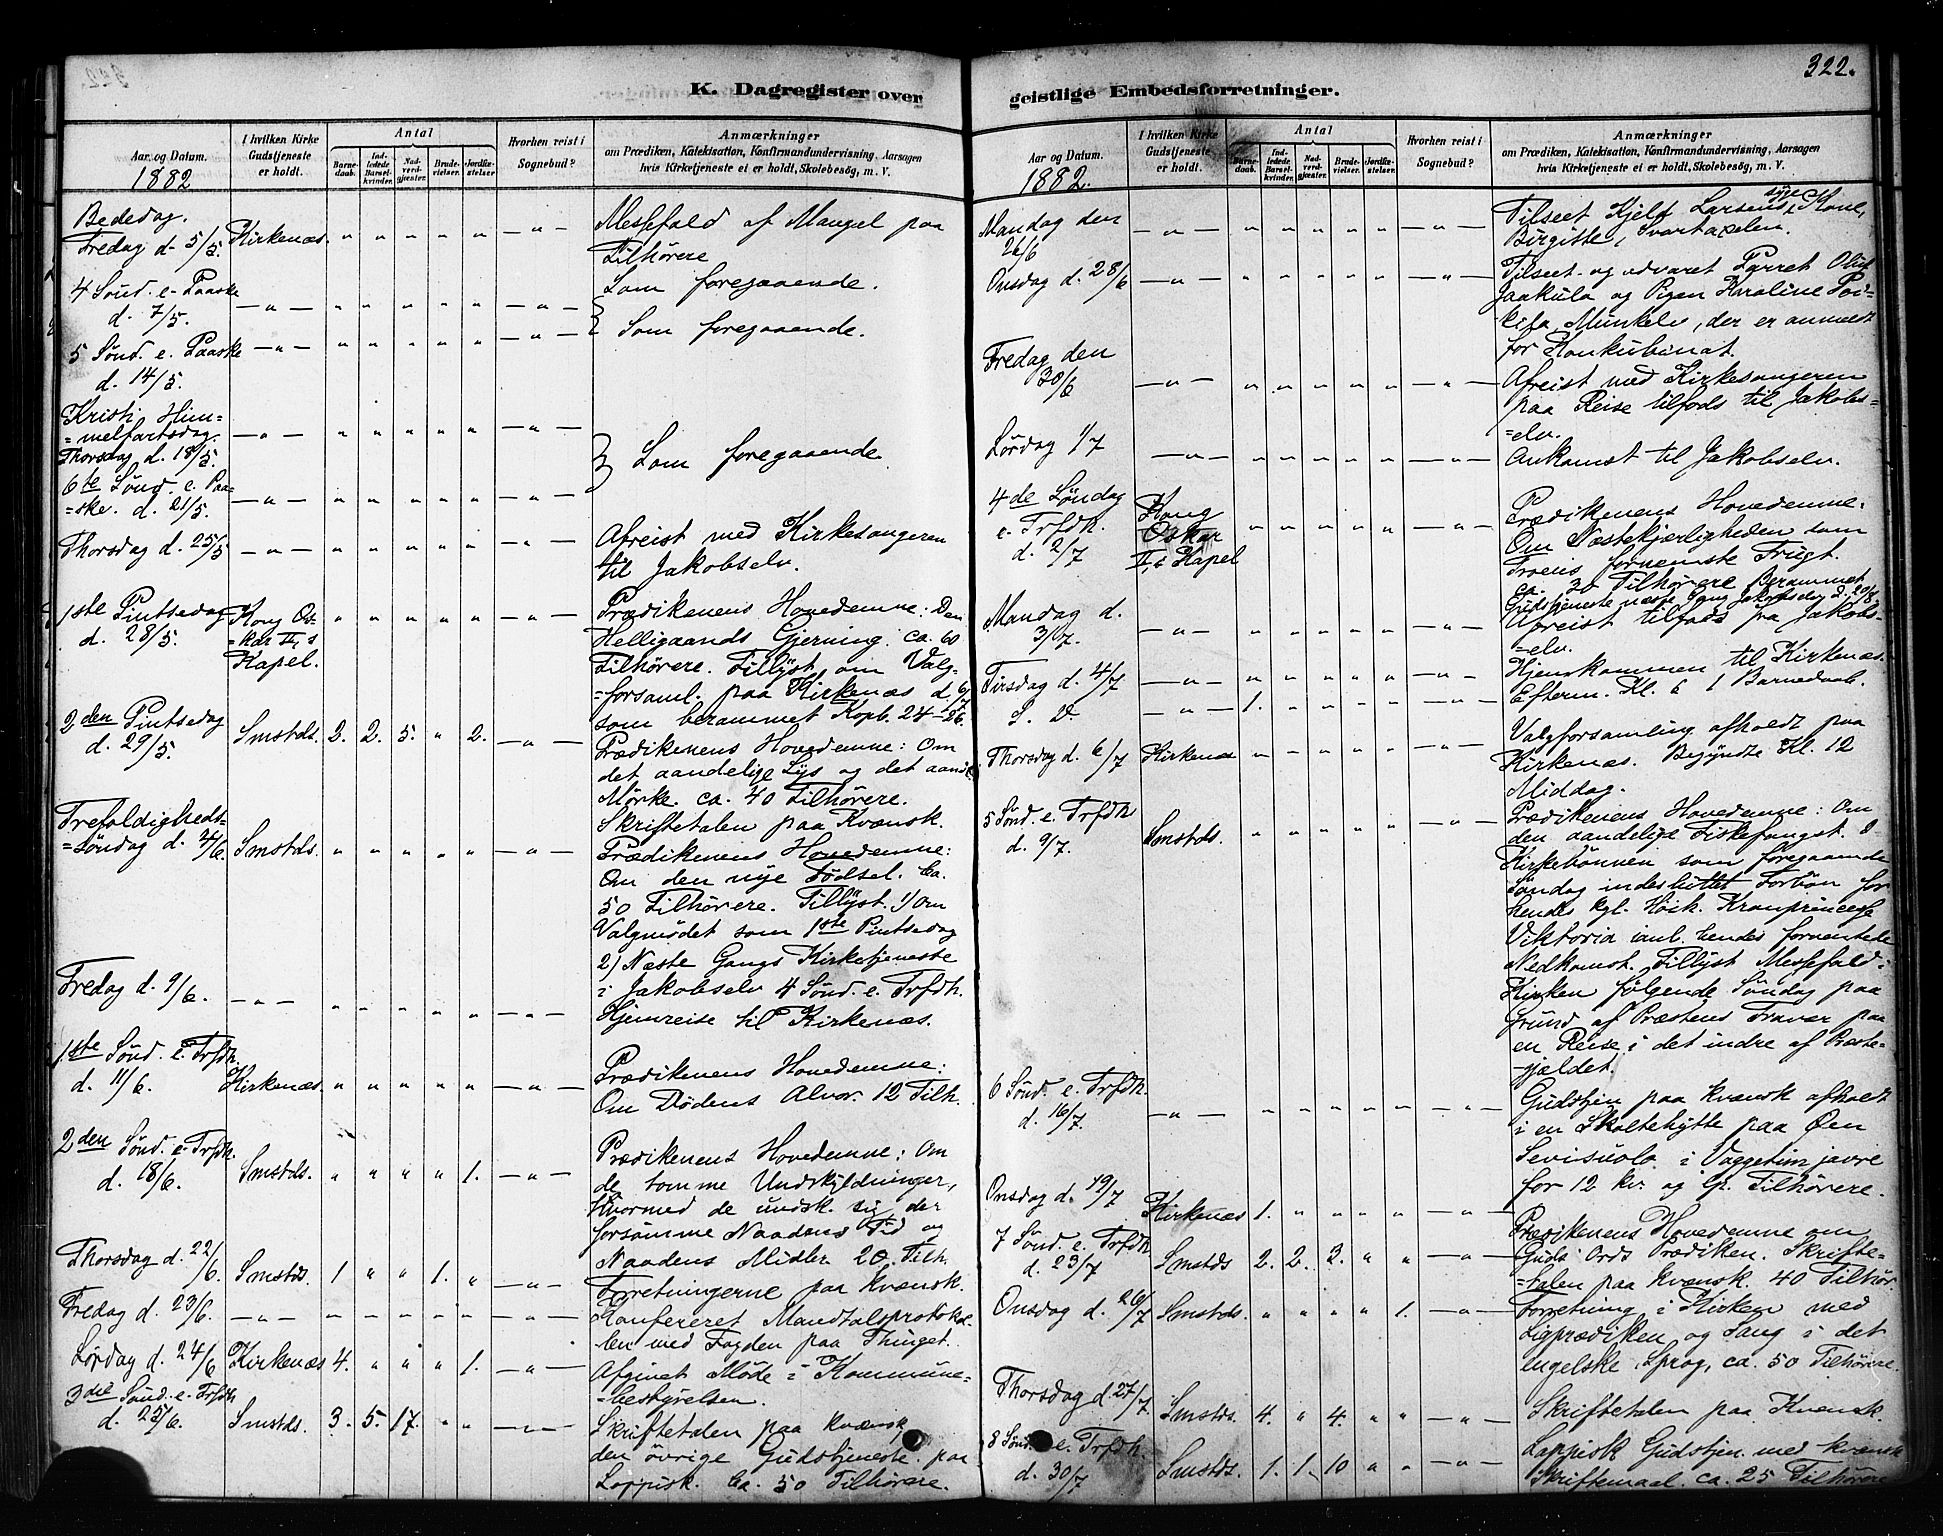 322.
K. Dagregister over
Aar og Datum.
1882
I hvilken Kirke Gudstjeneste er holdt.
Antal
Barnedaab.
Indledede Barselkvinder.
Nadverdgjæster.
Brudevielser.
Jordfæstelser
Hvorhen reist i Sognebud?
Anmærkninger
om Prædiken, Katekisation, Konfirmandundervisning, Aarsagen
hvis Kirketjeneste ei er holdt, Skolebesøg, m. V.
Bededag.
Fredag d. 5/5. Kirkenæs. „ „ „ „ „ —„— Messefald af Mangel paa
Tilhørere
4 Sønd. e. Paaske
d. 7/5. —„— „ „ „ „ „ —„— Som foregaaende.
5 Sønd. e. Paaske
d. 14/5. —„— „ „ „ „ „ —„— Som foregaaende.
Kristi Him=
=melfartsdag.
Thorsdag d. 18/5. —„— „ „ „ „ „ —„—
6te Sønd. e. Paa=
=ske. d. 21/5. —„— „ „ „ „ „ —„— Som foregaaende
Thorsdag d. 25/5 —„— „ „ „ „ „ —„— Afreist med Kirkesangeren
til Jakobselv.
1ste Pintsedag
d. 28/5. Kong Os=
=kar II,s
Kapel. „ „ „ „ „ —„— Prædikenens Hovedemne: Den
Helligaands Gjerning. ca. 60
Tilhørere. Tillyst om Valg=
=forsaml. paa Kirkenæs d. 6/7
som berammet Kopb. 24-26.
2den Pintsedag
d. 29/5. Smstds. 2. 2. 5. „ 2. —„— Prædikenens Hovedemne: Om
det aandelige Lys og det aand.
Mørke. ca. 40 Tilhørere.
Skriftetalen paa Kvænsk.
Trefoldigheds=
=Søndag d. 4/6. Smstds. „ „ „ „ „ —„— Prædikenens Hovedemne:
Om den nye Fødsel. Ca.
50 Tilhørere. Tillyst. 1) Om
Valgmødet som 1ste Pintsedag
2) Næste Gangs Kirketjeneste
i Jakobselv 4 Sønd. e. Trfdh.
Fredag d. 9/6. —„— „ „ „ „ „ —„— Hjemreise til Kirkenæs.
1ste Sønd. e. Trfdh.
d. 11/6. Kirkenæs „ „ „ „ „ —„— Prædikenens Hovedemne:
Om Dødens Alvor. 12 Tilh.
2den Sønd. e. Trfdh.
d. 18/6. Smstds. „ „ „ „ 1. —„— Prædikenens Hovedemne: Om
de tomme Undskyldninger,
hvormed de undsk. sig, der
forsømme Naadens Tid og
Naadens Midler 20 Tilh.
Thorsdag d. 22/6. Smstds. 1 „ „ 1. „ —„— Forretningerne paa kvænsk.
Fredag d. 23/6. —„— „ „ „ „ „ —„— Konfereret Mandtalsprotokol=
len med Fogden paa Thinget.
Lørdag d. 24/6 Kirkenæs 4. „ „ „ 1. —„— Afgivet Møde i Kommune=
=bestyrelsen.
3die Sønd. e. Trfdh
d. 25/6. Smstds. 3. 5. 17. „ „ —„— Skriftetalen paa kvænsk,
den övrige Gudstjeneste paa
Lappisk. Ca. 50 Tilhørere.
geistlige Embedsforretninger.
Aar og Datum.
1882.
I hvilken Kirke Gudstjeneste er holdt.
Antal
Barnedaab.
Indledede Barselkvinder.
Nadverdgjæster.
Brudevielser.
Jordfæstelser
Hvorhen reist i Sognebud?
Anmærkninger
om Prædiken, Katekisation, Konfirmandundervisning, Aarsagen
hvis Kirketjeneste ei er holdt, Skolebesøg, m. V.
Mandag den
26/6 —„— „ „ „ „ „ —„— Tilseet Kjelf Larsens syge Kone,
Birgitte, Svartaxelen.
Onsdag d. 28/6 —„— „ „ „ „ „ —„— Tilseet og advaret
Jaakula og Pigen Karoline
Munkelv, der er anmeldt
for Konkubinat.
Fredag den
30/6 —„— „ „ „ „ „ —„— Afreist med Kirkesangeren
paa Reise tilfods til Jakobs=
=elv.
Lørdag 1/7 —„— „ „ „ „ „ —„— Ankomst til Jakobselv.
4de Søndag
e. Trfdh.
d. 2/7 Kong
Oskar
II,s Kapel „ „ „ „ „ —„— Prædikenens Hovedemne.
Om Næstekjærligheden som
Troens fornemste Frugt.
ca. 30 Tilhørere Berammet
Gudstjeneste næste Gang Jakobselv d. 20/8.
Mandag d.
3/7. —„— „ „ „ „ „ —„— Afreist tilfods fra Jakobs=
=elv.
Tirsdag d. 4/7 —„— „ „ „ „ „ —„— Hjemkommen til Kirkenæs.
S. D. —„— 1. „ „ „ „ —„— Efterm. Kl. 6 1 Barnedaab.
Thorsdag d. 6/7 Kirkenæs „ „ „ „ „ —„— Valgforsamling afholdt paa
Kirkenæs. Begyndte Kl. 12
Middag.
5 Sønd. e. Trfdh
d. 9/7. Smstds. „ „ „ „ „ —„— Prædikenens Hovedemne: Om
den aandelige Fiskefangst. I
Kirkebønnen som foregaaende
Søndag indesluttet Forbøn for
hendes kgl. Høih. Kronprincesse
Viktoria anl. hendes forventede
Nedkomst. Tillyst Messefald i
Kirken følgende Søndag paa
Grund af Præstens Fravær paa
en Reise i det indre af Præste=
=gjældet.
6 Sønd. e. Trfdh.
d. 16/7. —„— „ „ „ „ „ —„— Gudstjen paa kvænsk afholdt
i en Skoltehytte paa Øen
Sevisuolo i Vaggetimjavre
for 12 kv. og lp. Tilhørere.
Onsdag d. 19/7 Kirkenæs 1. „ „ „ „ —„—
7 Sønd. e. Trfdh.
d. 23/7 Smstds 2. 2. 3. „ „ —„— Prædikenens Hovedemne om
Guds Ords Prædiken. Skrifte=
=talen paa kvænsk. 40 Tilhør.
Onsdag d. 26/7 Smstds. „ „ „ „ 1. —„— Forretning i Kirken med
Ligprædiken og Sang i det
engelske Sprog, ca. 50 Tilhørere.
Thorsdag d. 27/7. Smstds. 4. „ 4. „ „ —„— Skriftetalen paa Kvensk.
8 Sønd. e. Trfdh.
d. 30/7 Smstds. 1. 1. 10 „ „ —„— Lappisk Gudstjen. med kvænsk
Skriftemaal. ca. 25 Tilhørere